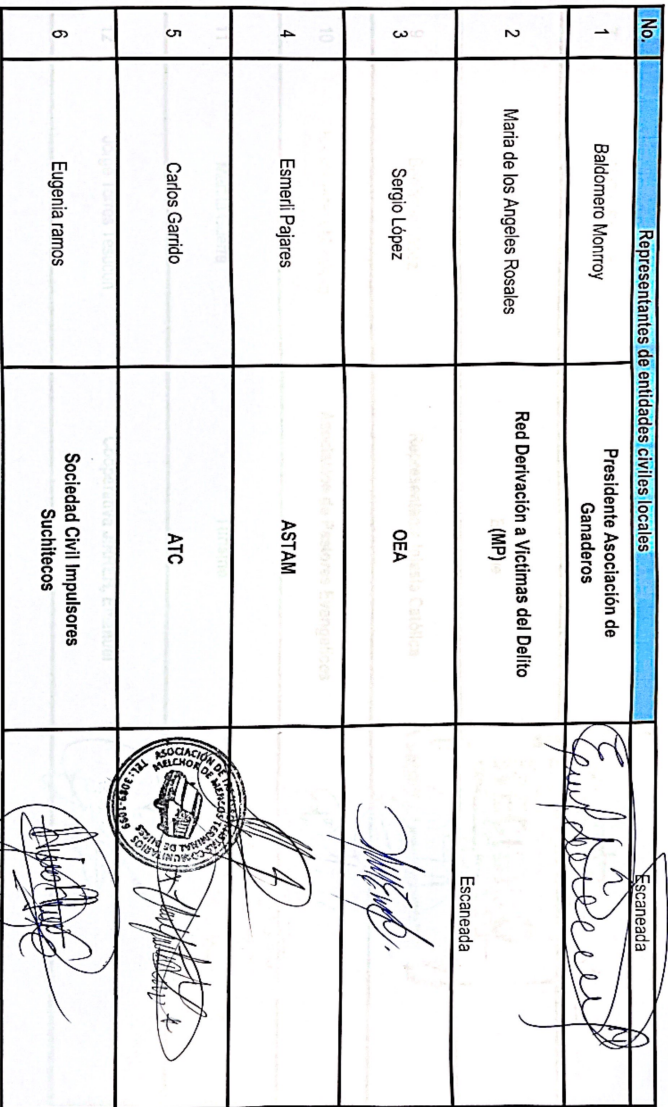 No. Representantes de entidades civiles locales
1 Baldomero Monrroy Presidente Asociación de
Ganaderos Escaneada
2 Maria de los Angeles Rosales Red Derivación a Victimas del Delito
(MP) Escaneada
3 Sergio López OEA
4 Esmerli Pajares ASTAM
5 Carlos Garrido ATC
ASOCIACIÓN DE COMUNITARIOS
MELCHOR DE MENCOS
TERMINAL DE BUSES
6 Eugenia ramos Sociedad Civil Impulsores
Suchitecos